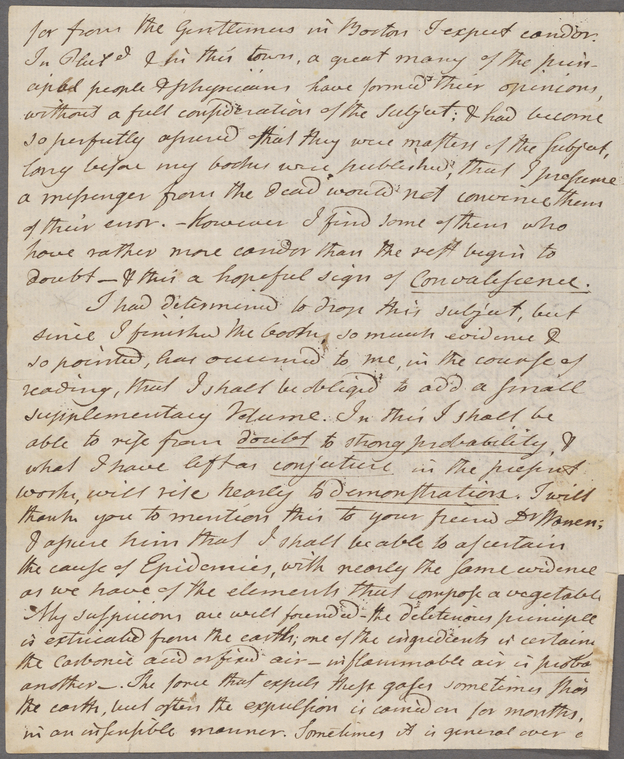 for from the Gentlemen in Boston I expect candor.
In Phil.d & in this town, a great many of the prin-
cipal people & physicians have formed their opinions,
without a full consideration of the subject: & had become
so perfectly assured that they were masters of the subject,
long before my books were published, that I presume
a messenger from the dead would not convince them
of their error. - However I find some of them who
have rather more candor than the rest begin to
doubt — & this a hopeful sign of Convalescence.
I had determined to drop this subject, but
since I finished the books, so much evidence &
so pointed, has occurred to me, in the course of
reading, that I shall be obliged to add a small
supplementary Volume. In this I shall be
able to rise from doubt to strong probability, &
what I have left as conjecture in the present
work, will rise nearly to demonstration. I will
thank you to mention this to your friend Dr Warren;
& assure him that I shall be able to ascertain
the cause of Epidemics, with nearly the same evidence
as we have of the elements that compose a vegetable
My suspicions are well founded - the deleterious principle
is extricated from the earth; one of the ingredients is certain
the carbonic acid or fixed air — inflammable air is proba
another —. The force that expels these gases sometimes
the earth, but often the expulsion is carried on for months,
in an insensible manner. Sometimes it is general over